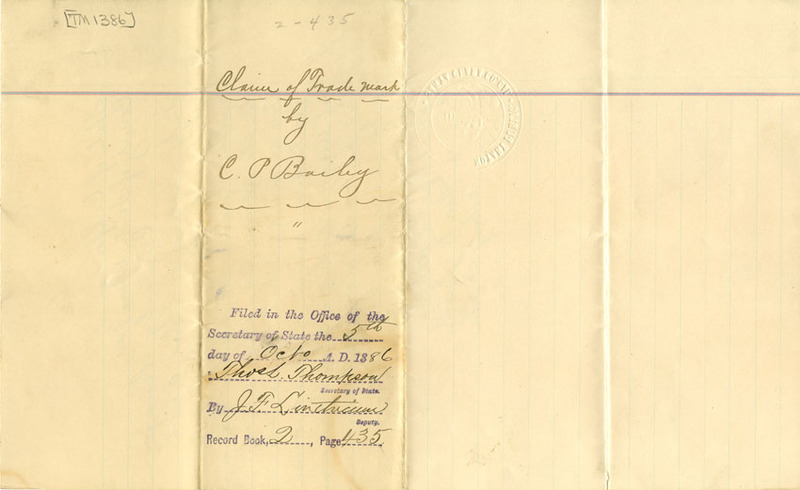 [TM 1386]
2-435
Claim of Trade Mark
by
C. P. Bailey
"
Filed in the Office of the
Secretary of State the 5th
day of Octo A. D. 1886
Thos. L. Thompson
Secretary of State.
By J F Linthicum
Deputy.
Record Book, 2, Page 435